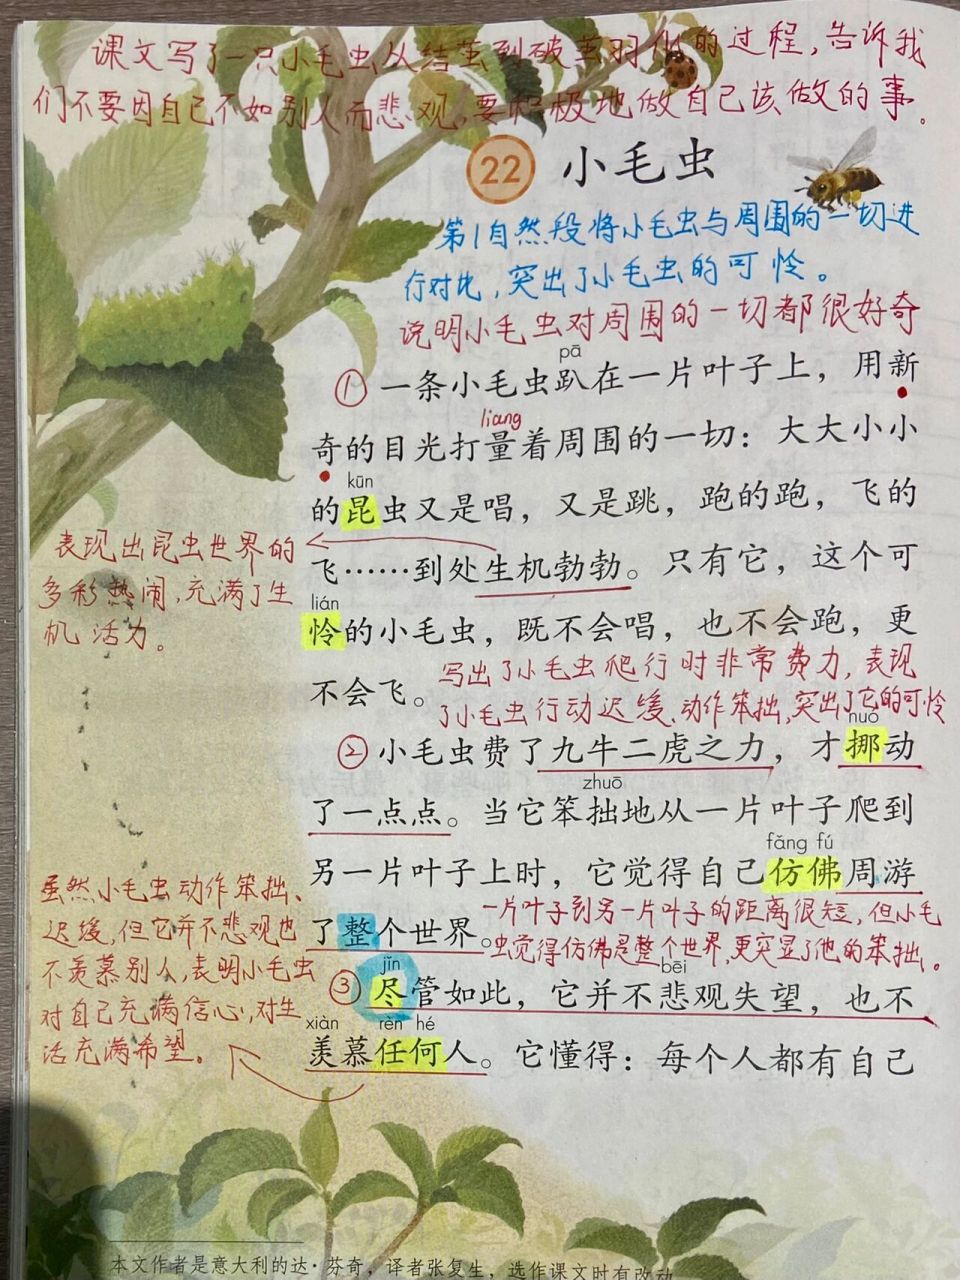 课文写了一只小毛虫从结茧到破茧羽化的过程，告诉我
们不要因自己不如别人而悲观，要积极地做自己该做的事。
22 小毛虫
第1自然段将小毛虫与周围的一切进
行对比，突出了小毛虫的可怜。
说明小毛虫对周围的一切都很好奇
pā
①一条小毛虫趴在一片叶子上，用新
liang
奇的目光打量着周围的一切：大大小小
kūn
的昆虫又是唱，又是跳，跑的跑，飞的
飞……到处生机勃勃。只有它，这个可
表现出昆虫世界的
多彩热闹，充满了生
机活力。
lián
怜的小毛虫，既不会唱，也不会跑，更
不会飞。
写出了小毛虫爬行时非常费力，表现
了小毛虫行动迟缓、动作笨拙，突出了它的可怜
nuó
②小毛虫费了九牛二虎之力，才挪动
zhuō
了一点点。当它笨拙地从一片叶子爬到
fǎng fú
另一片叶子上时，它觉得自己仿佛周游
了整个世界。
一片叶子到另一片叶子的距离很短，但小毛
虫觉得仿佛是整个世界，更突显了他的笨拙。
jǐn bēi
③尽管如此，它并不悲观失望，也不
xiàn rèn hé
羡慕任何人。它懂得：每个人都有自己
虽然小毛虫动作笨拙、
迟缓，但它并不悲观也
不羡慕别人，表明小毛虫
对自己充满信心，对生
活充满希望。
本文作者是意大利的达·芬奇，译者张复生，选作课文时有改动